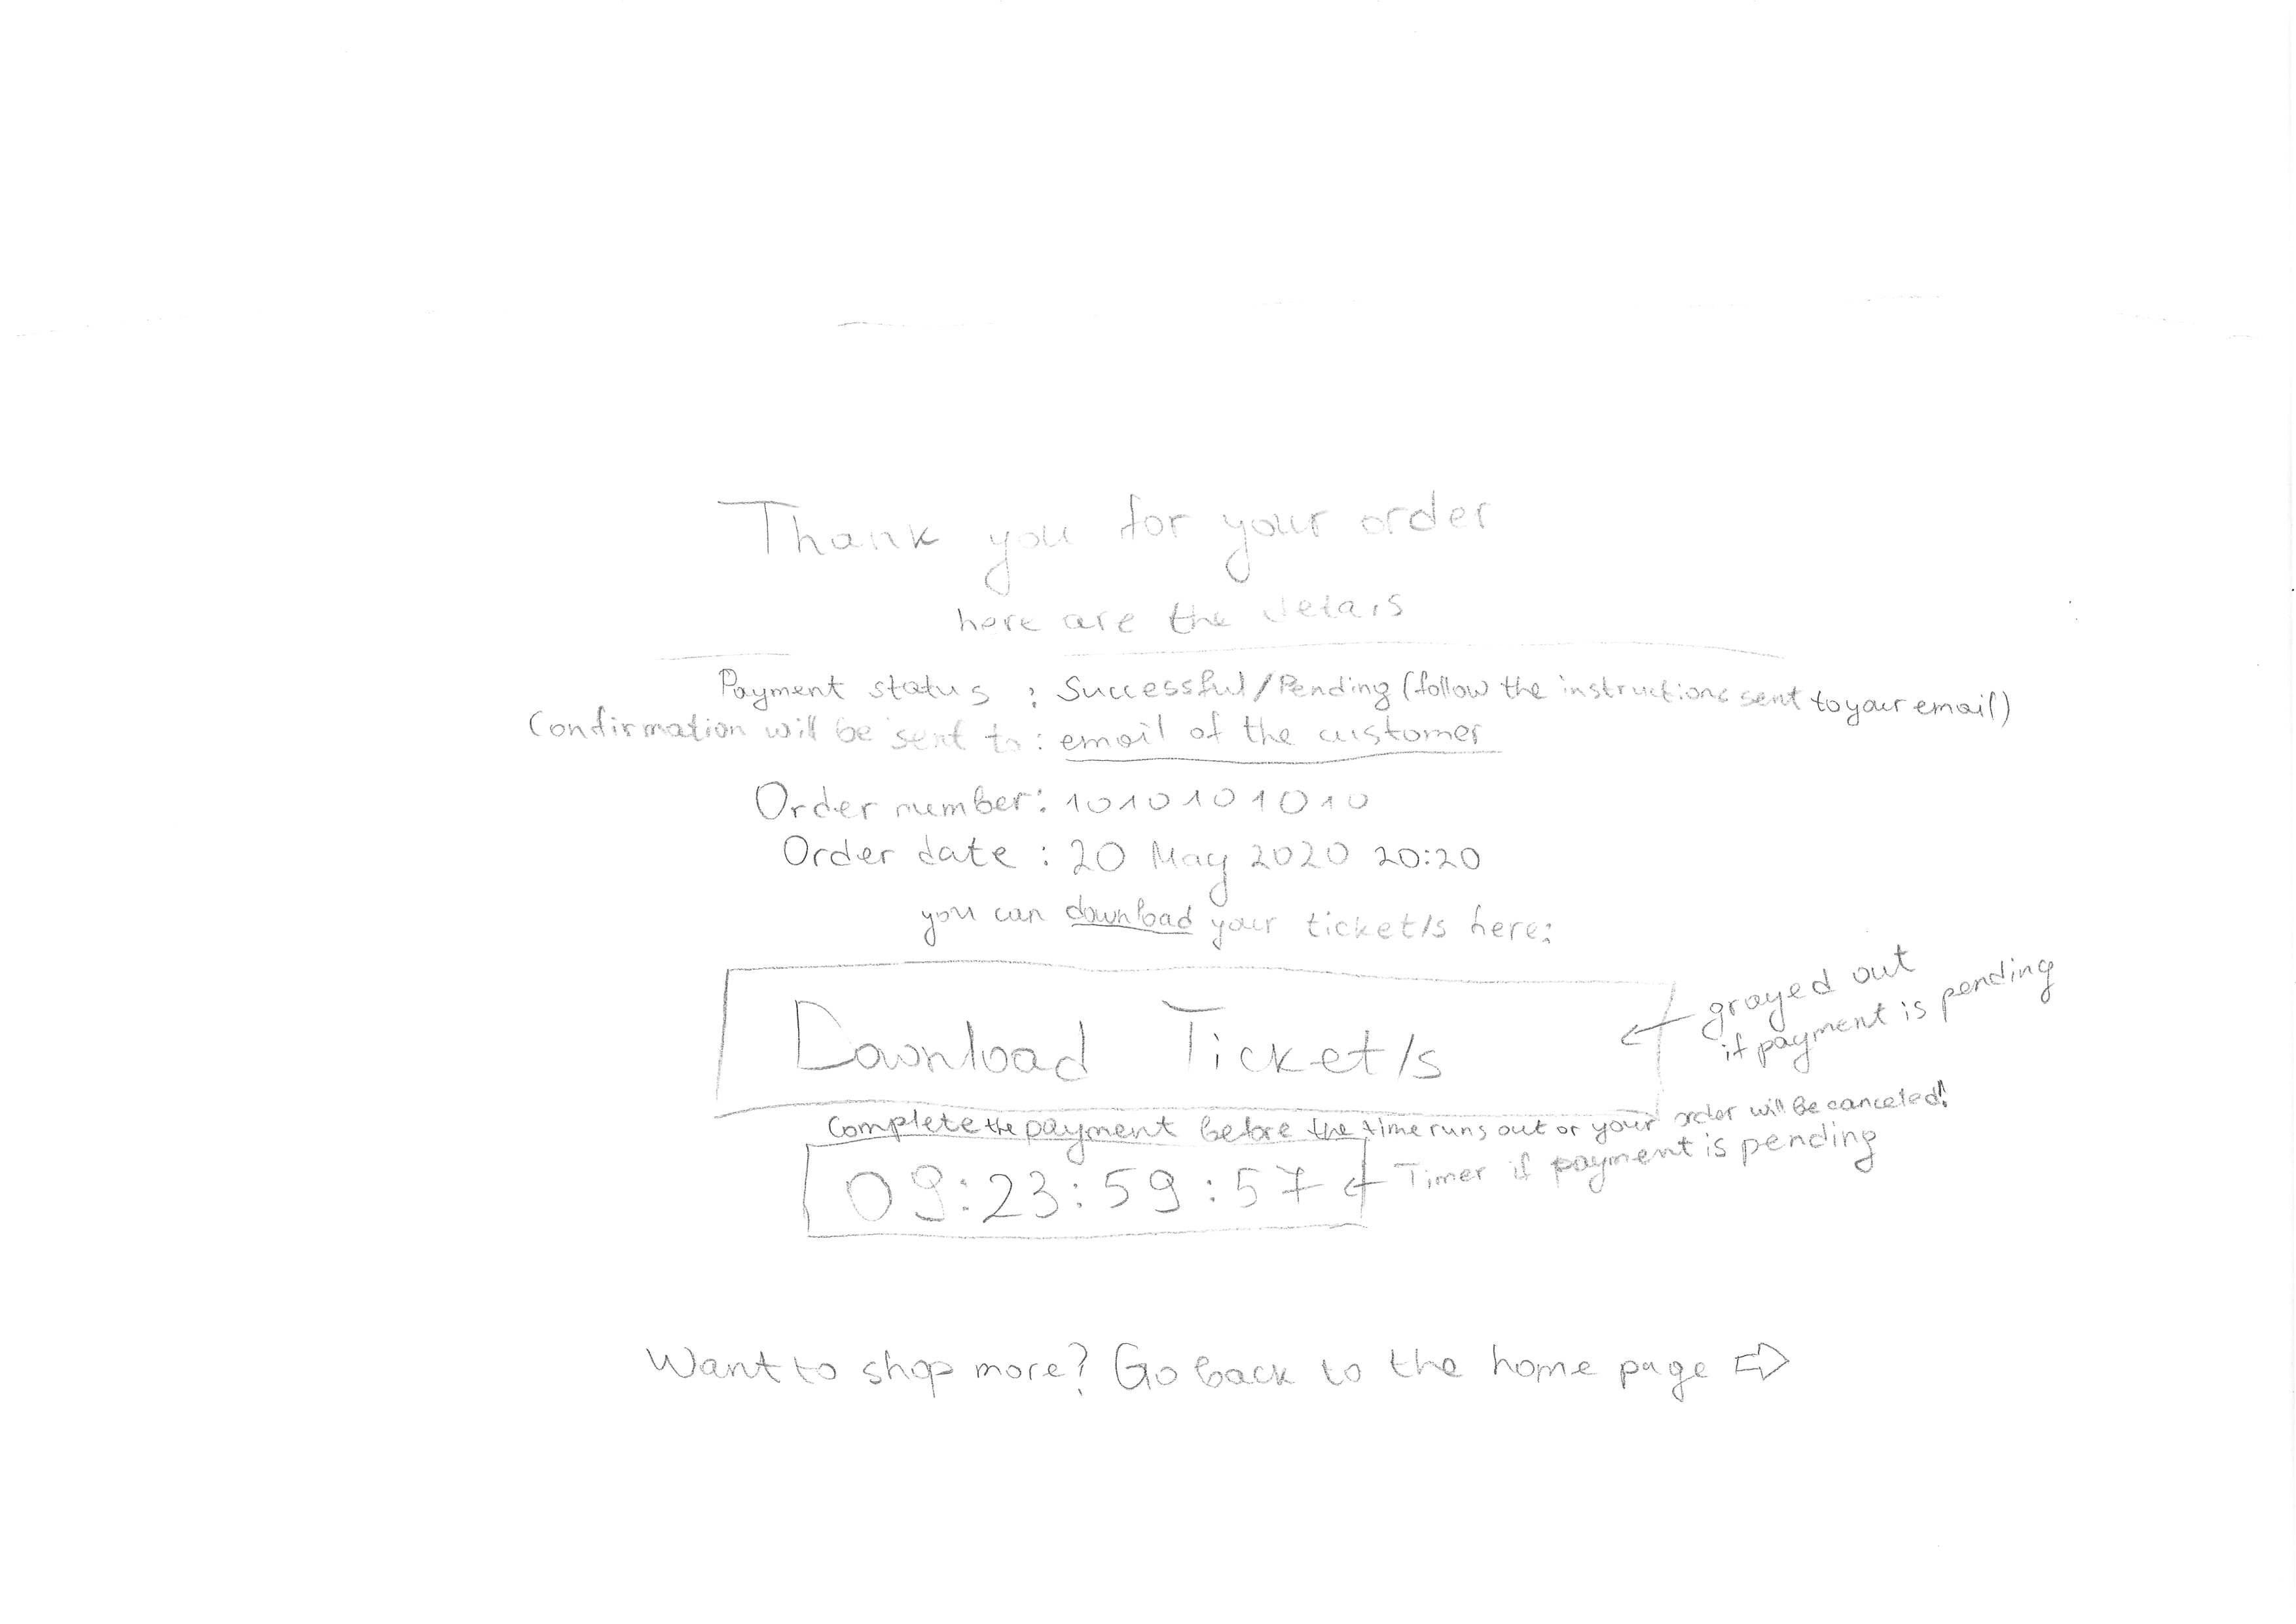 Thank you for your order
here are the detais
Payment status : Successful/Pending (follow the instructions sent to your email)
Confirmation will be sent to: email of the customer
Order number: 1010101010
Order date : 20 May 2020 20:20
you can download your ticket/s here:
Download Ticket/s
grayed out
if payment is pending
Complete the payment before the time runs out or your order will be canceled!
09:23:59:57
Timer if payment is pending
Want to shop more? Go back to the home page ⇨